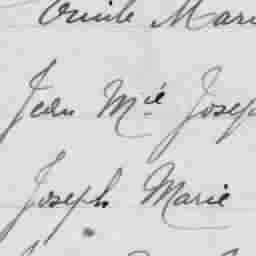 Emile Mari
Jean Mié Josep
Joseph Marie